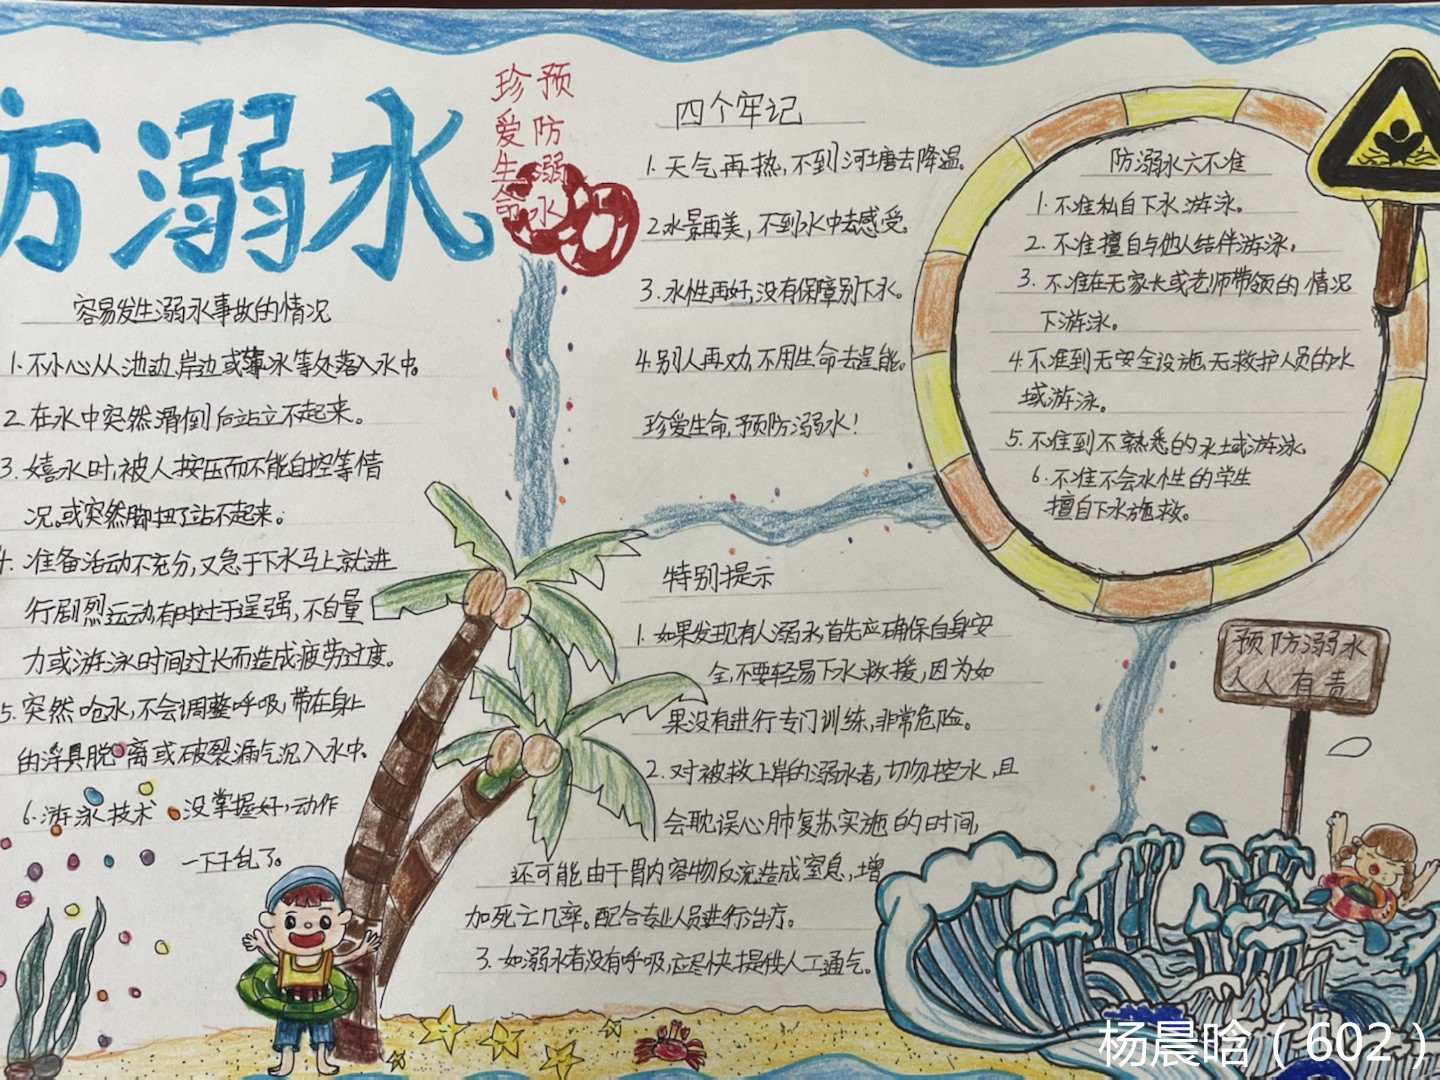 防溺水
珍爱生命
预防溺水
容易发生溺水事故的情况
1.不小心从池边、岸边或薄冰等处落入水中。
2.在水中突然滑倒后站立不起来。
3.嬉水时,被人按压而不能自控等情
况。或突然脚扭了站不起来。
4.准备活动不充分,又急于下水马上就进
行剧烈运动,有时过于逞强,不自量
力或游泳时间过长而造成疲劳过度。
5.突然呛水,不会调整呼吸,带在身上
的浮具脱离或破裂漏气沉入水中。
6.游泳技术没掌握好,动作
一下子乱了。
四个牢记
1.天气再热,不到河塘去降温。
2.水景再美,不到水中去感受。
3.水性再好,没有保障别下水。
4.别人再劝,不用生命去逞能。
珍爱生命,预防溺水!
防溺水六不准
1.不准私自下水游泳。
2.不准擅自与他人结伴游泳。
3.不准在无家长或老师带领的情况
下游泳。
4.不准到无安全设施、无救护人员的水
域游泳。
5.不准到不熟悉的水域游泳。
6.不准不会水性的学生
擅自下水施救。
特别提示
1.如果发现有人溺水,首先应确保自身安
全,不要轻易下水救援,因为如
果没有进行专门训练,非常危险。
2.对被救上岸的溺水者,切勿控水,且
会耽误心肺复苏实施的时间,
还可能由于胃内容物反流造成窒息,增
加死亡几率。配合专业人员进行治疗。
3.如溺水者没有呼吸,应尽快提供人工通气。
预防溺水
人人有责
杨晨晗（602）